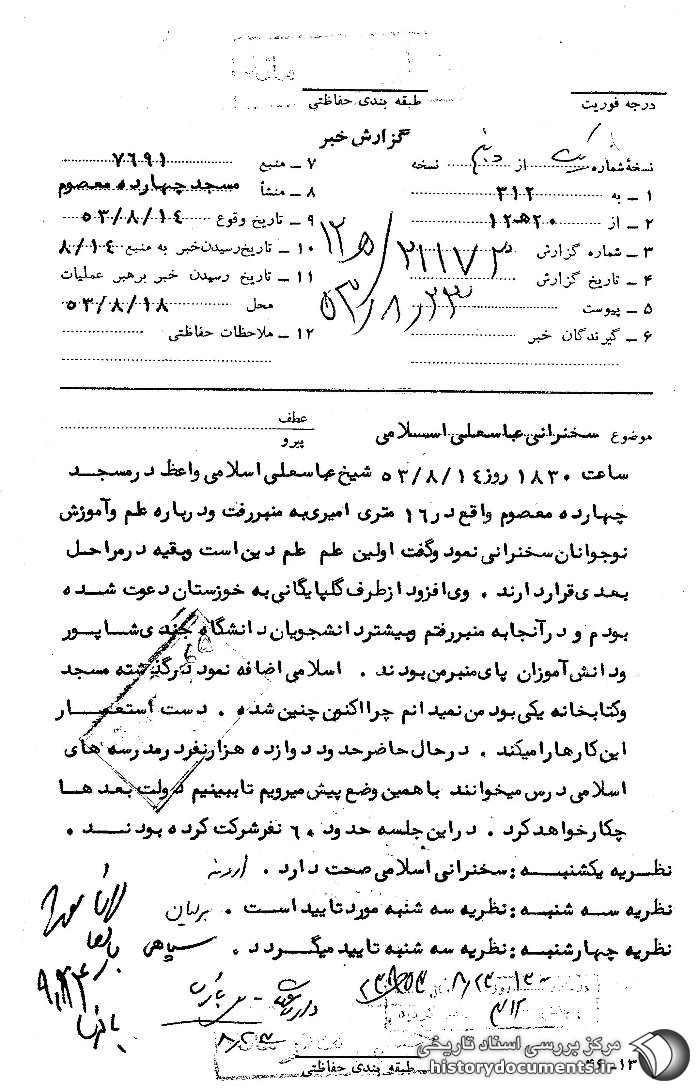 طبقه بندی حفاظتی
درجه فوریت
گزارش خبر
نسخهٔ شماره یک از نسخه
۱ ـ به ۳۱۲
۲ ـ از ۲۰ه۱۲
۳ ـ شماره گزارش
۴ ـ تاریخ گزارش ۵۳/۸/۲۳
۵ ـ پیوست
۶ ـ گیرندگان خبر
۷ ـ منبع ۷۶۹۱
۸ ـ منشأ مسجد چهارده معصوم
۹ ـ تاریخ وقوع ۵۳/۸/۱۴
۱۰ ـ تاریخ رسیدن خبر به منبع ۸/۱۴
۱۱ ـ تاریخ رسیدن خبر برهبر عملیات
محل ۵۳/۸/۱۸
۱۲ ـ ملاحظات حفاظتی
موضوع سخنرانی عباسعلی اسلامی
عطف
پیرو
ساعت ۱۸۳۰ روز ۵۳/۸/۱۴ شیخ عباسعلی اسلامی واعظ درمسجد
چهارده معصوم واقع در ۱۶ متری امیری به منبر رفت ودرباره علم وآموزش
نوجوانان سخنرانی نمود وگفت اولین علم علم دین است وبقیه درمراحل
بعدی قرار دارند . وی افزود از طرف گلپایگانی به خوزستان دعوت شده
بودم و در آنجا به منبر رفتم وبیشتر دانشجویان دانشگاه جندی شاپور
ودانش آموزان پای منبر من بودند . اسلامی اضافه نمود درگذشته مسجد
وکتابخانه یکی بود من نمیدانم چرا اکنون چنین شده . دست استعمار
این کارها را میکند . در حال حاضر حدود دوازده هزار نفر در مدرسه های
اسلامی درس میخوانند با همین وضع پیش میرویم تا ببینیم دولت بعدها
چکار خواهد کرد . در این جلسه حدود ۶۰ نفر شرکت کرده بودند .
نظریه یکشنبه : سخنرانی اسلامی صحت دارد .
نظریه سه شنبه : نظریه سه شنبه مورد تایید است .
نظریه چهارشنبه : نظریه سه شنبه تایید میگردد . سپاهی
۳۱۲
طبقه بندی حفاظتی
مرکز بررسی اسناد تاریخی
www.historydocuments.ir